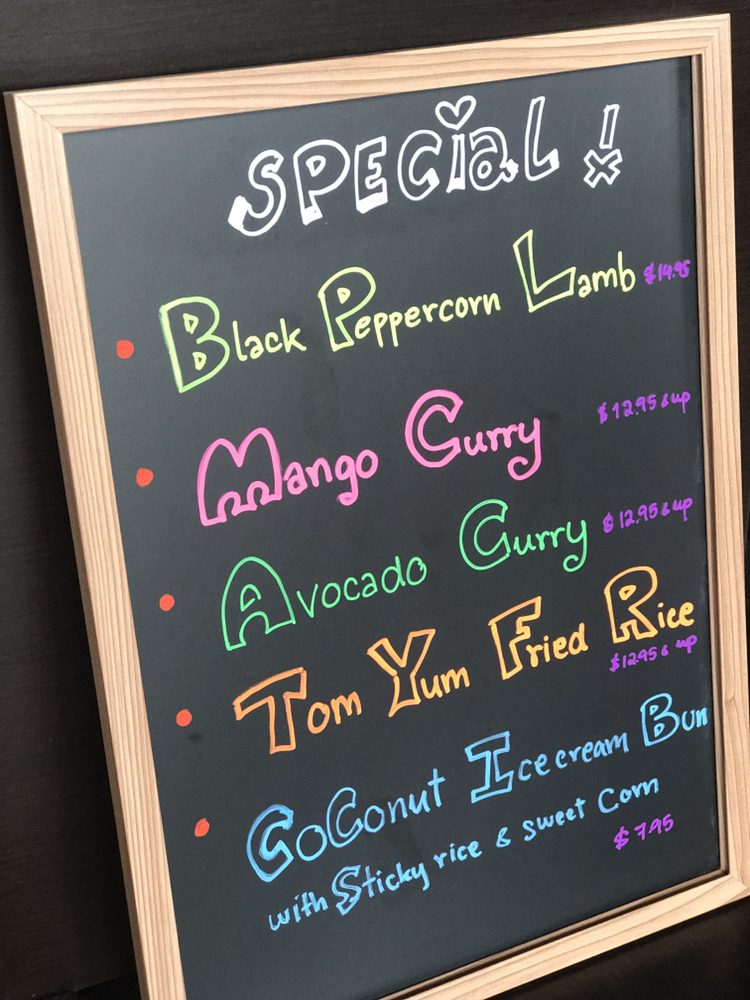 SPECiaL!
Black Peppercorn Lamb $14.95
Mango Curry $12.95 & up
Avocado Curry $12.95 & up
Tom Yum Fried Rice
$12.95 & up
CoConut Ice cream Bun
with Sticky rice & sweet Corn
$7.95